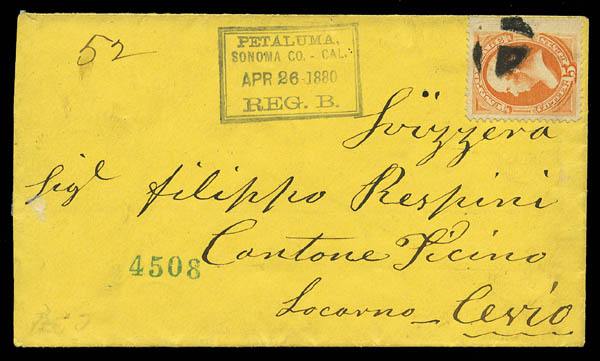 52
PETALUMA,
SONOMA CO. - CAL.
APR 26 1880
REG. B.
15
Svizzera
Sigr Filippo Respini
Cantone Ticino
4508
Locarno - Cevio